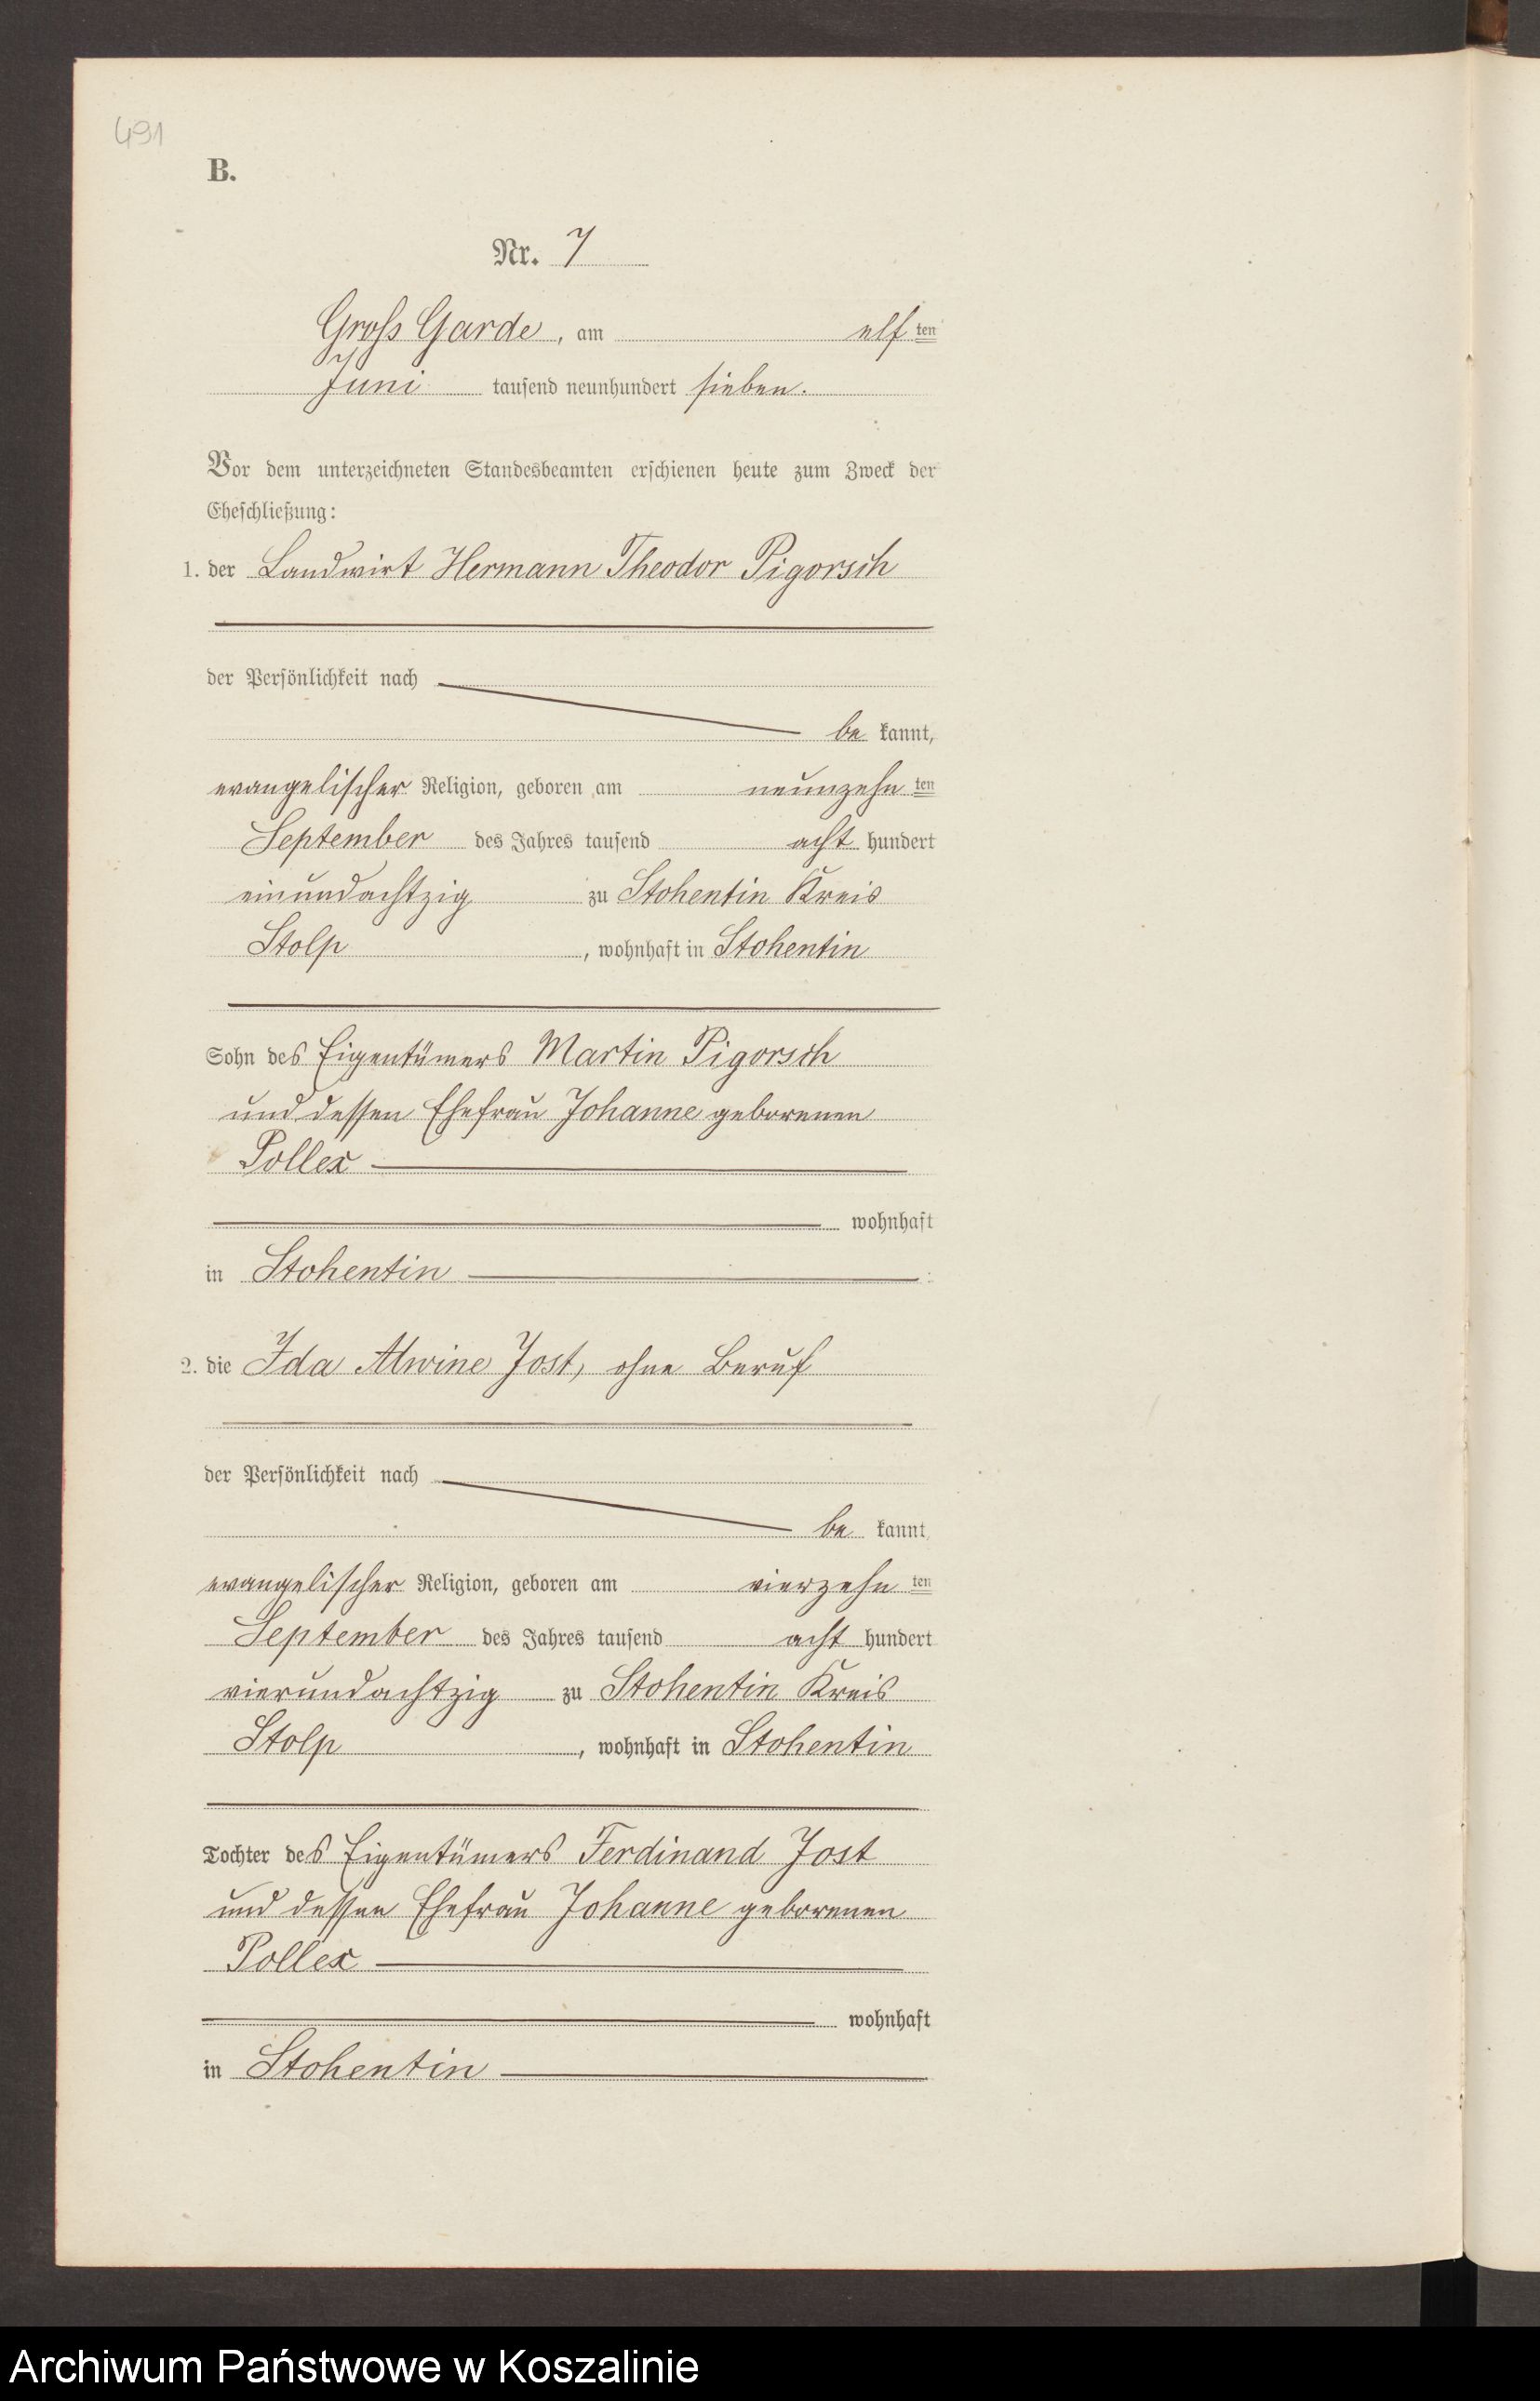 491
B.
Nr. 7
Gross Garde, am elf ten
Juni tausend neunhundert sieben.
Vor dem unterzeichneten Standesbeamten erschienen heute zum Zweck der
Eheschließung:
1. der Landwirt Hermann Theodor Pigorsch
der Persönlichkeit nach
be kannt,
evangelischer Religion, geboren am neunzehn ten
September des Jahres tausend acht hundert
einundachtzig zu Stohentin Kreis
Stolp, wohnhaft in Stohentin
Sohn des Eigentümers Martin Pigorsch
und dessen Ehefrau Johanne geborenen
Pollex
wohnhaft
in Stohentin
2. die Ida Alwine Jost, ohne Beruf
der Persönlichkeit nach
be kannt,
evangelischer Religion, geboren am vierzehn ten
September des Jahres tausend acht hundert
vierundachtzig zu Stohentin Kreis
Stolp, wohnhaft in Stohentin
Tochter des Eigentümers Ferdinand Jost
und dessen Ehefrau Johanne geborenen
Pollex
wohnhaft
in Stohentin
Archiwum Państwowe w Koszalinie